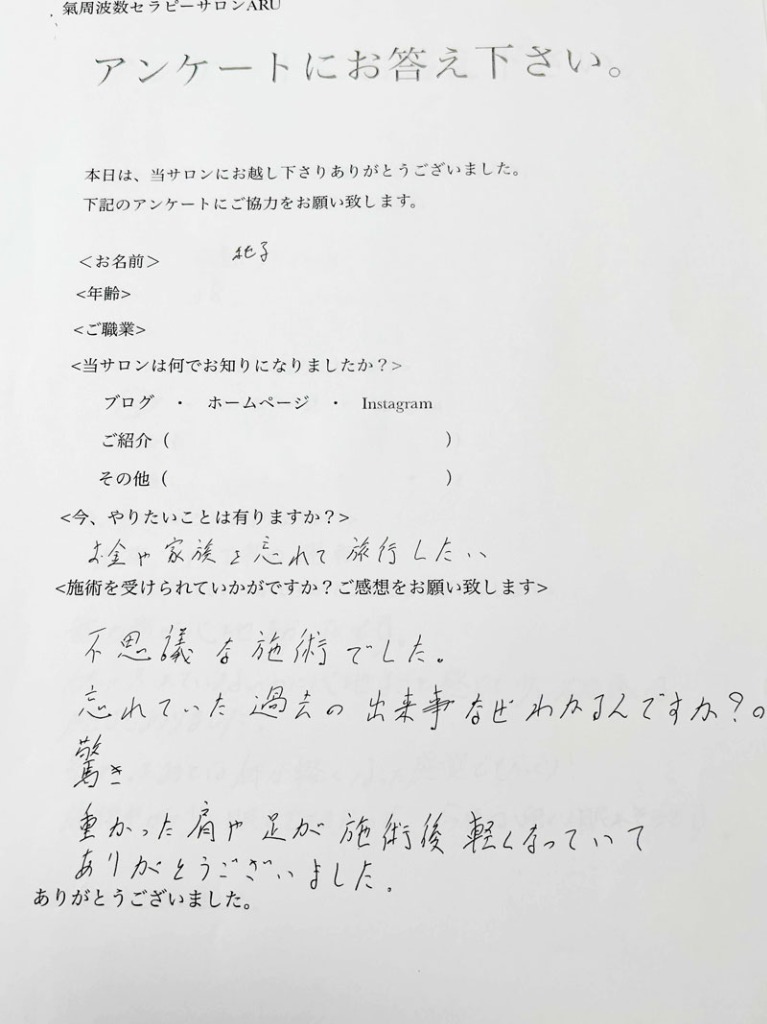 氣周波数セラピーサロンARU
アンケートにお答え下さい。
本日は、当サロンにお越し下さりありがとうございました。
下記のアンケートにご協力をお願い致します。
＜お名前＞
<年齢>
<ご職業>
<当サロンは何でお知りになりましたか？>
ブログ ・ ホームページ ・ Instagram
ご紹介（ ）
その他（ ）
<今、やりたいことは有りますか？>
お金や家族を忘れて旅行したい
<施術を受けられていかがですか？ご感想をお願い致します>
不思議な施術でした。
忘れていた過去の出来事なぜわかるんですか？。
驚き
重かった肩や足が施術後軽くなっていて
ありがとうございました。
ありがとうございました。